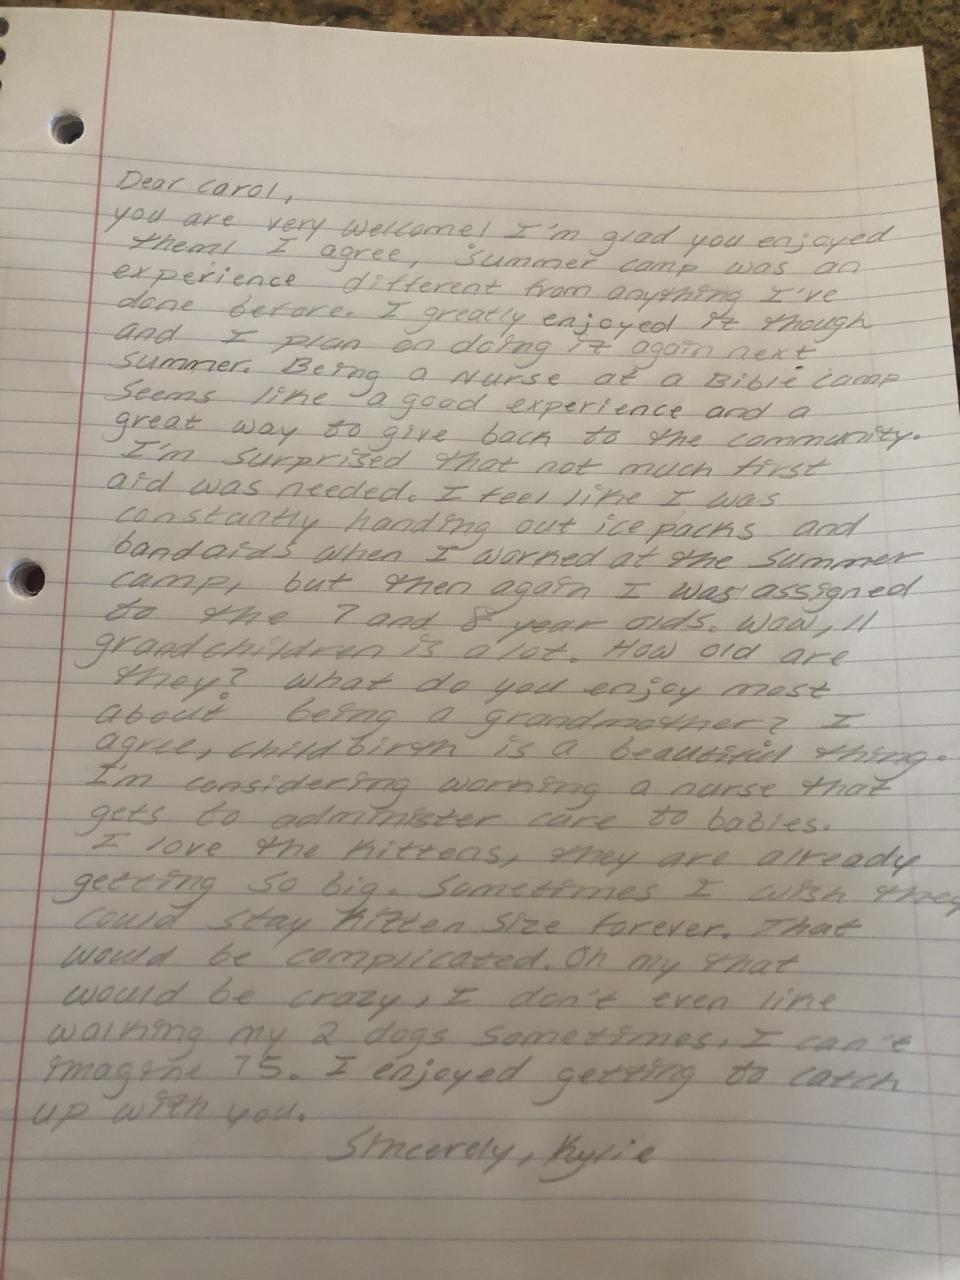 Dear Carol,
you are very welcome! I'm glad you enjoyed
them! I agree, summer camp was an
experience different from anything I've
done before. I greatly enjoyed it though
and I plan on doing it again next
summer. Being a Nurse at a Bible camp
seems like a good experience and a
great way to give back to the community.
I'm surprised that not much first
aid was needed. I feel like I was
constantly handing out ice packs and
bandaids when I worked at the summer
camp, but then again I was assigned
to the 7 and 8 year olds. Wow, 11
grandchildren is a lot. How old are
they? What do you enjoy most
about being a grandmother? I
agree, childbirth is a beautiful thing.
I'm considering working a nurse that
gets to administer care to babies.
I love the kittens, they are already
getting so big. Sometimes I wish they
could stay kitten size forever. That
would be complicated. Oh my that
would be crazy, I don't even like
walking my 2 dogs sometimes, I can't
imagine 75. I enjoyed getting to catch
up with you.
Sincerely, Kylie